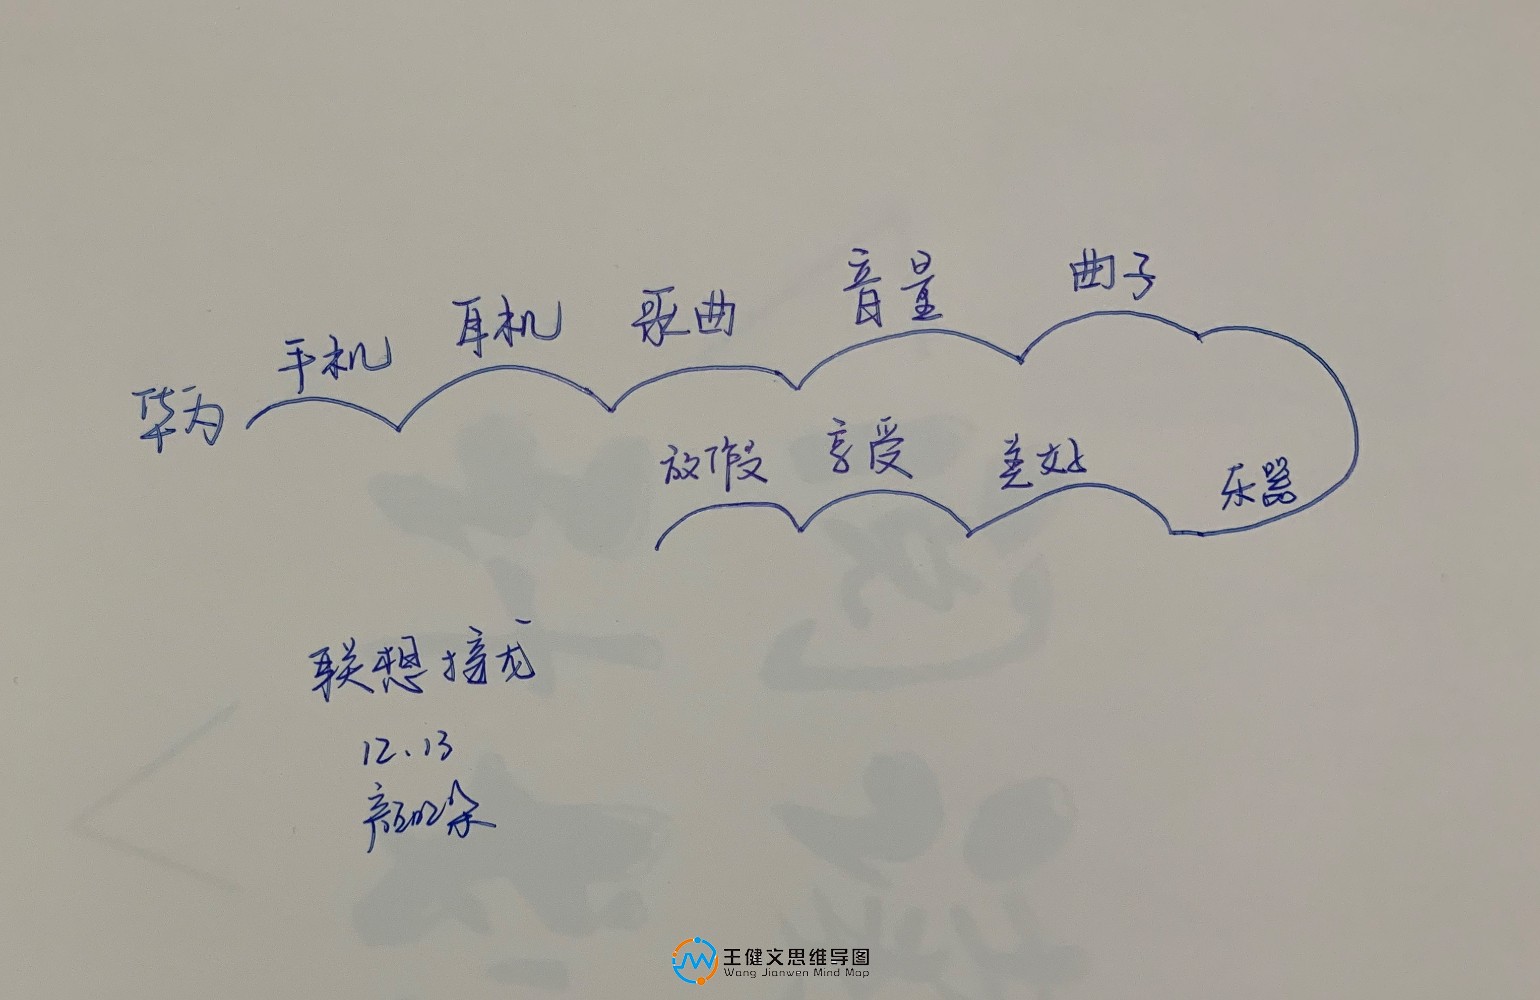 华为 手机 耳机 歌曲 音量 曲子
乐器 美好 享受 放假
联想接龙
12.13
王健文思维导图
Wang Jianwen Mind Map